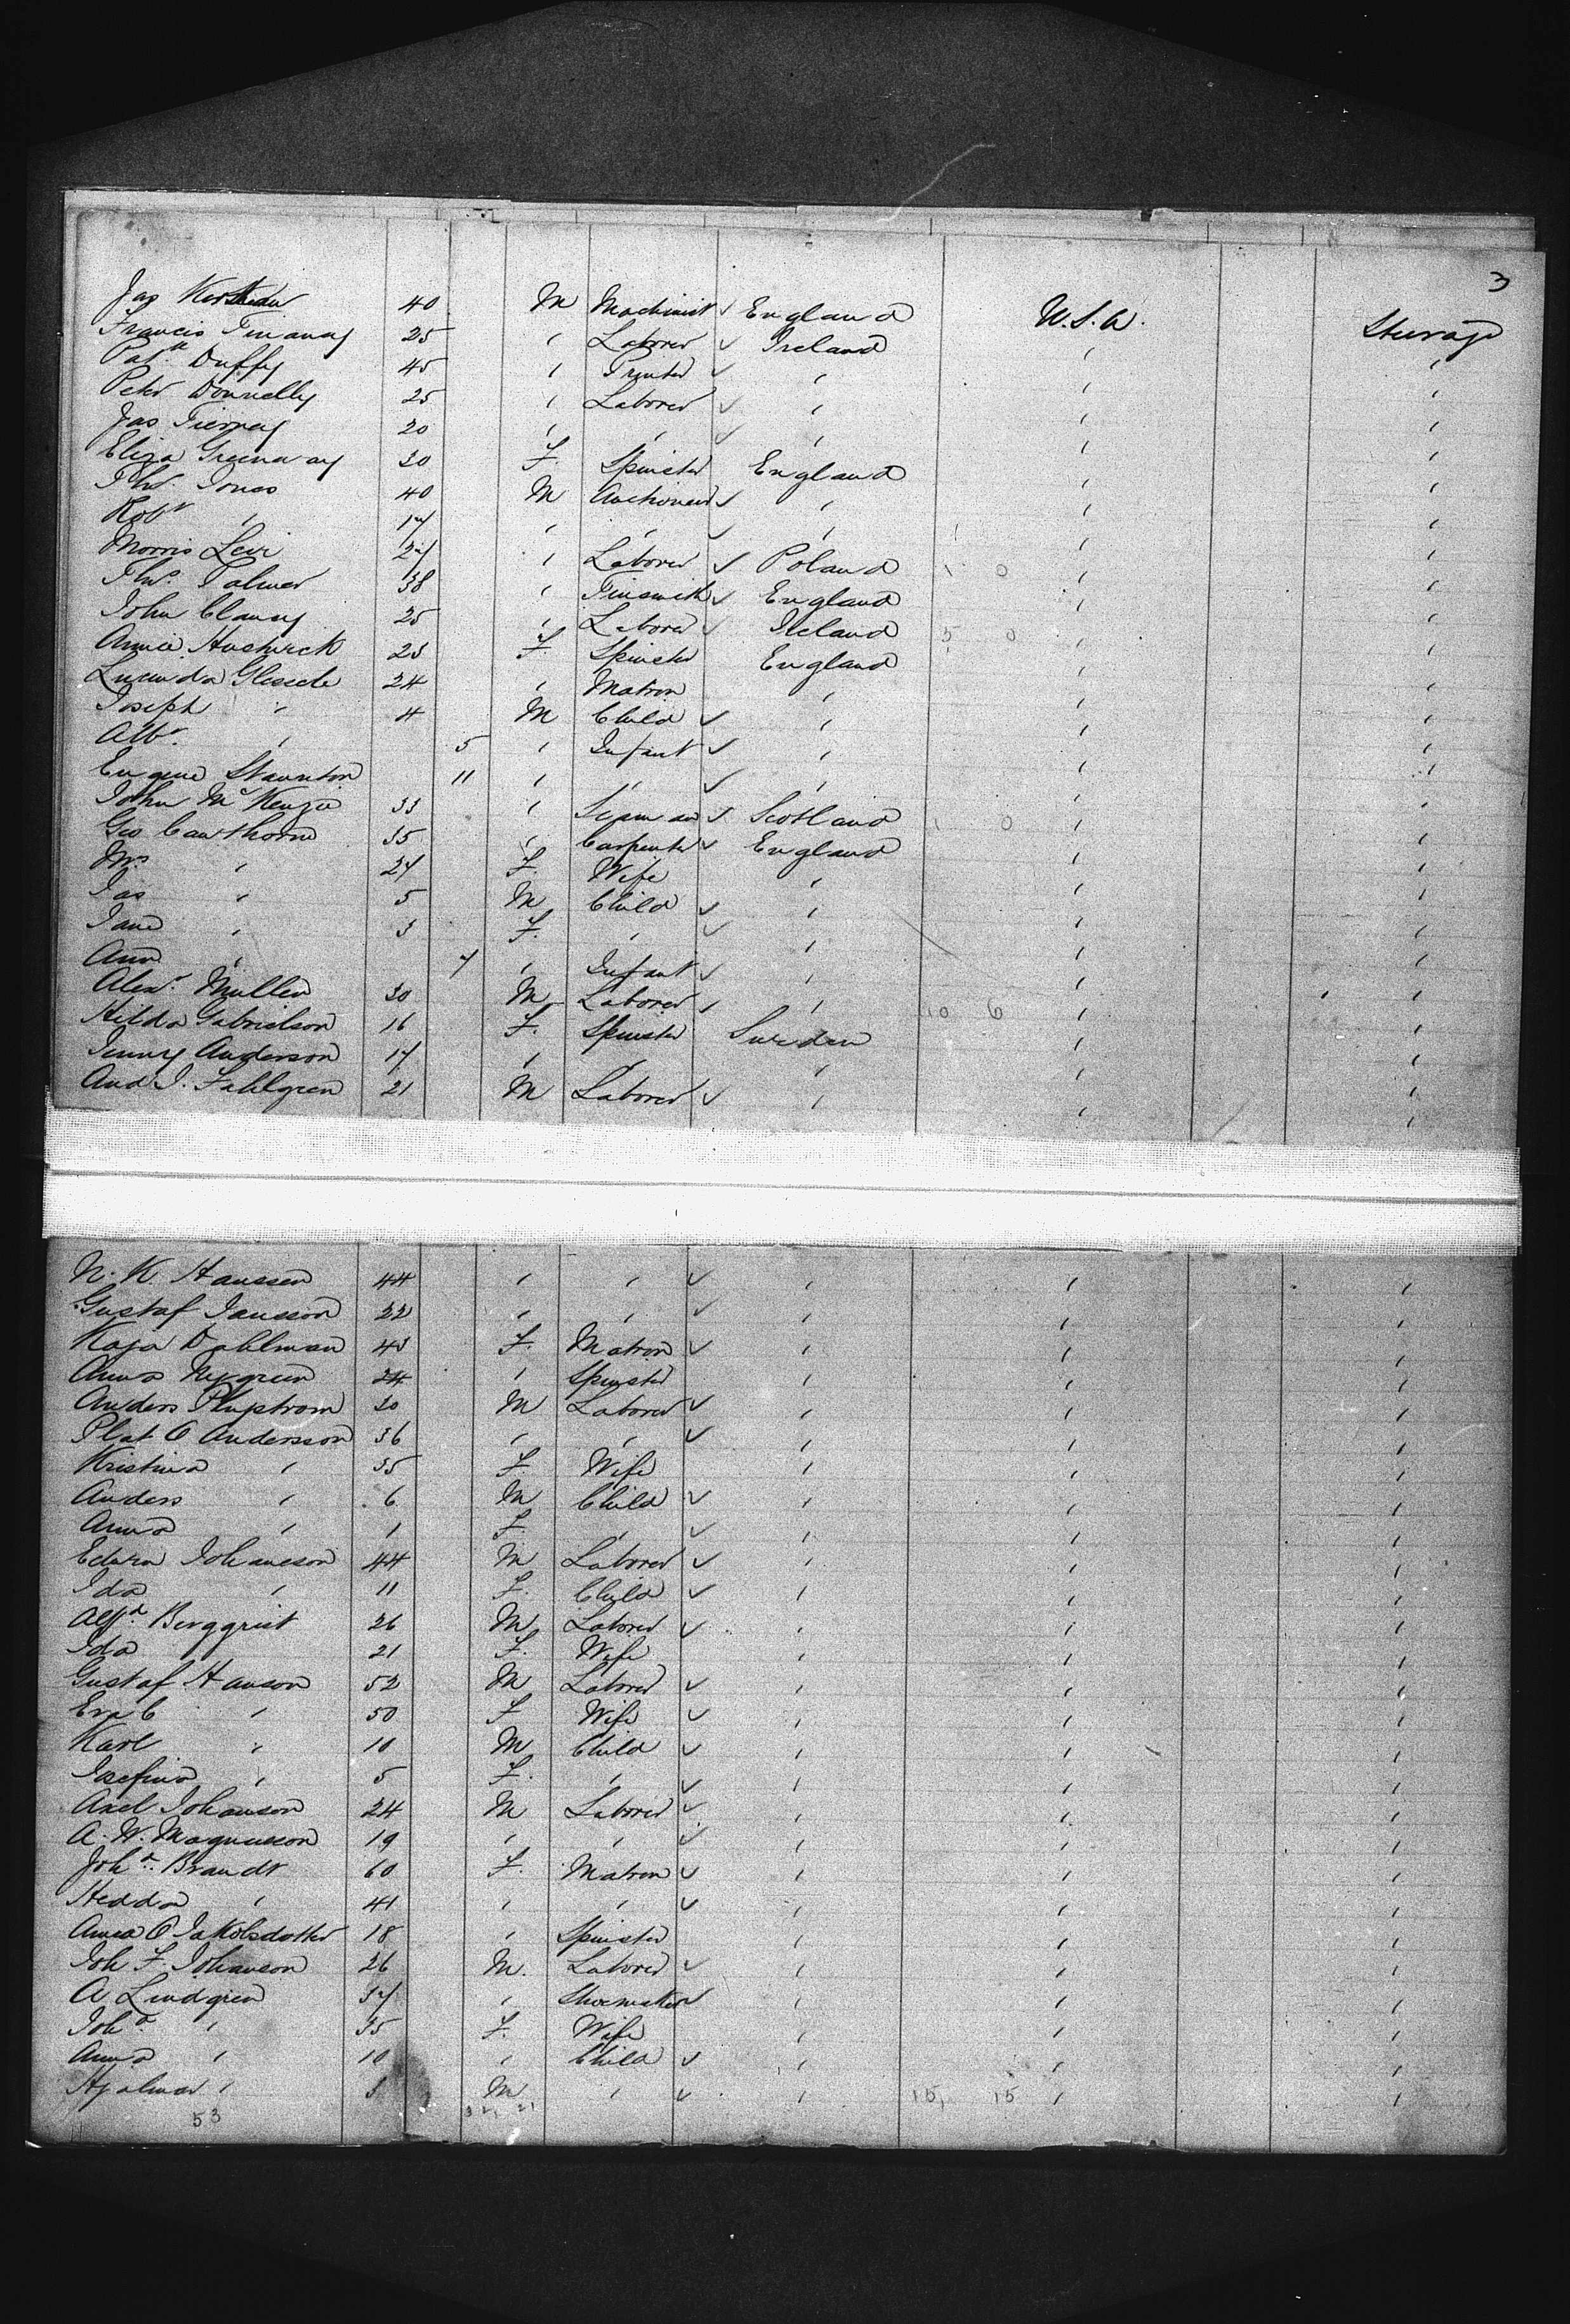 3
Jas 40 M Machinist ✓ England U.S.A. Steerage
Francis 25 " Laborer ✓ Ireland " "
Patk Duffy 45 " Printer ✓ " " "
Peter Donnelly 25 " Laborer ✓ " " "
Jas Tierney 20 " " ✓ " " "
Eliza Greenway 30 F. Spinster England " "
Thos Jones 40 M Auctioneer ✓ " " "
Robt " 17 " " ✓ " " "
Morris Levi 27 " Laborer ✓ Poland 1 0 " "
Thos. Palmer 38 " Tinsmith ✓ England " "
John Clancy 25 " Laborer ✓ Ireland 5 0 " "
Annie 23 F Spinster England " "
Lucinda 24 " Matron " " "
Joseph " 4 M Child ✓ " " "
Albt. " 5 " Infant ✓ " " "
Eugene Staunton 11 " " ✓ " " "
John McKenzie 33 " Seaman ✓ Scotland 1 0 " "
Geo Cawthorne 35 " Carpenter ✓ England " "
Mrs " 27 F. Wife " " "
Jas " 5 M Child ✓ " " "
Jane " 3 F. " ✓ " " "
Ann " 7 " Infant ✓ " " "
Alexr. Mullen 30 M Laborer " " 10 6 " "
Hilda Gabrielson 16 F. Spinster Sweden " "
Jenny Anderson 17 " " " " "
And J. Fahlgren 21 M Laborer ✓ " " "
N. K. Hanssen 44 " " ✓ " " "
Gustaf Jansson 22 " " ✓ " " "
Kaja Dahlman 43 F. Matron ✓ " " "
Anna Nygreen 24 " Spinster " " "
Anders 30 M Laborer ✓ " " "
O Andersson 36 " " ✓ " " "
Kristina " 35 F. Wife " " "
Anders " 6 M Child ✓ " " "
Anna " 1 F. " ✓ " " "
Johaneson 44 M Laborer ✓ " " "
Ida " 11 F. Child ✓ " " "
Alfd. Bergqrist 26 M Laborer ✓ " " "
Ida 21 F. Wife " " "
Gustaf Hanson 52 M Laborer ✓ " " "
Eva C " 50 F Wife ✓ " " "
Karl " 10 M Child ✓ " " "
Josefina " 5 F. " ✓ " " "
Axel Johanson 24 M Laborer ✓ " " "
A. W. Magnusson 19 " " ✓ " " "
Joha. Brandt 60 F. Matron ✓ " " "
Hedda " 41 " " ✓ " " "
Anna O Jakobsdotter 18 " Spinster " " "
Joh F. Johanson 26 M. Laborer ✓ " " "
A Lindgren 37 " Shoemaker ✓ " " "
Joha. " 35 F. Wife " " "
Anna " 10 " Child ✓ " " "
Hjalmar " 3 M " ✓ " 15, 15 " "
53